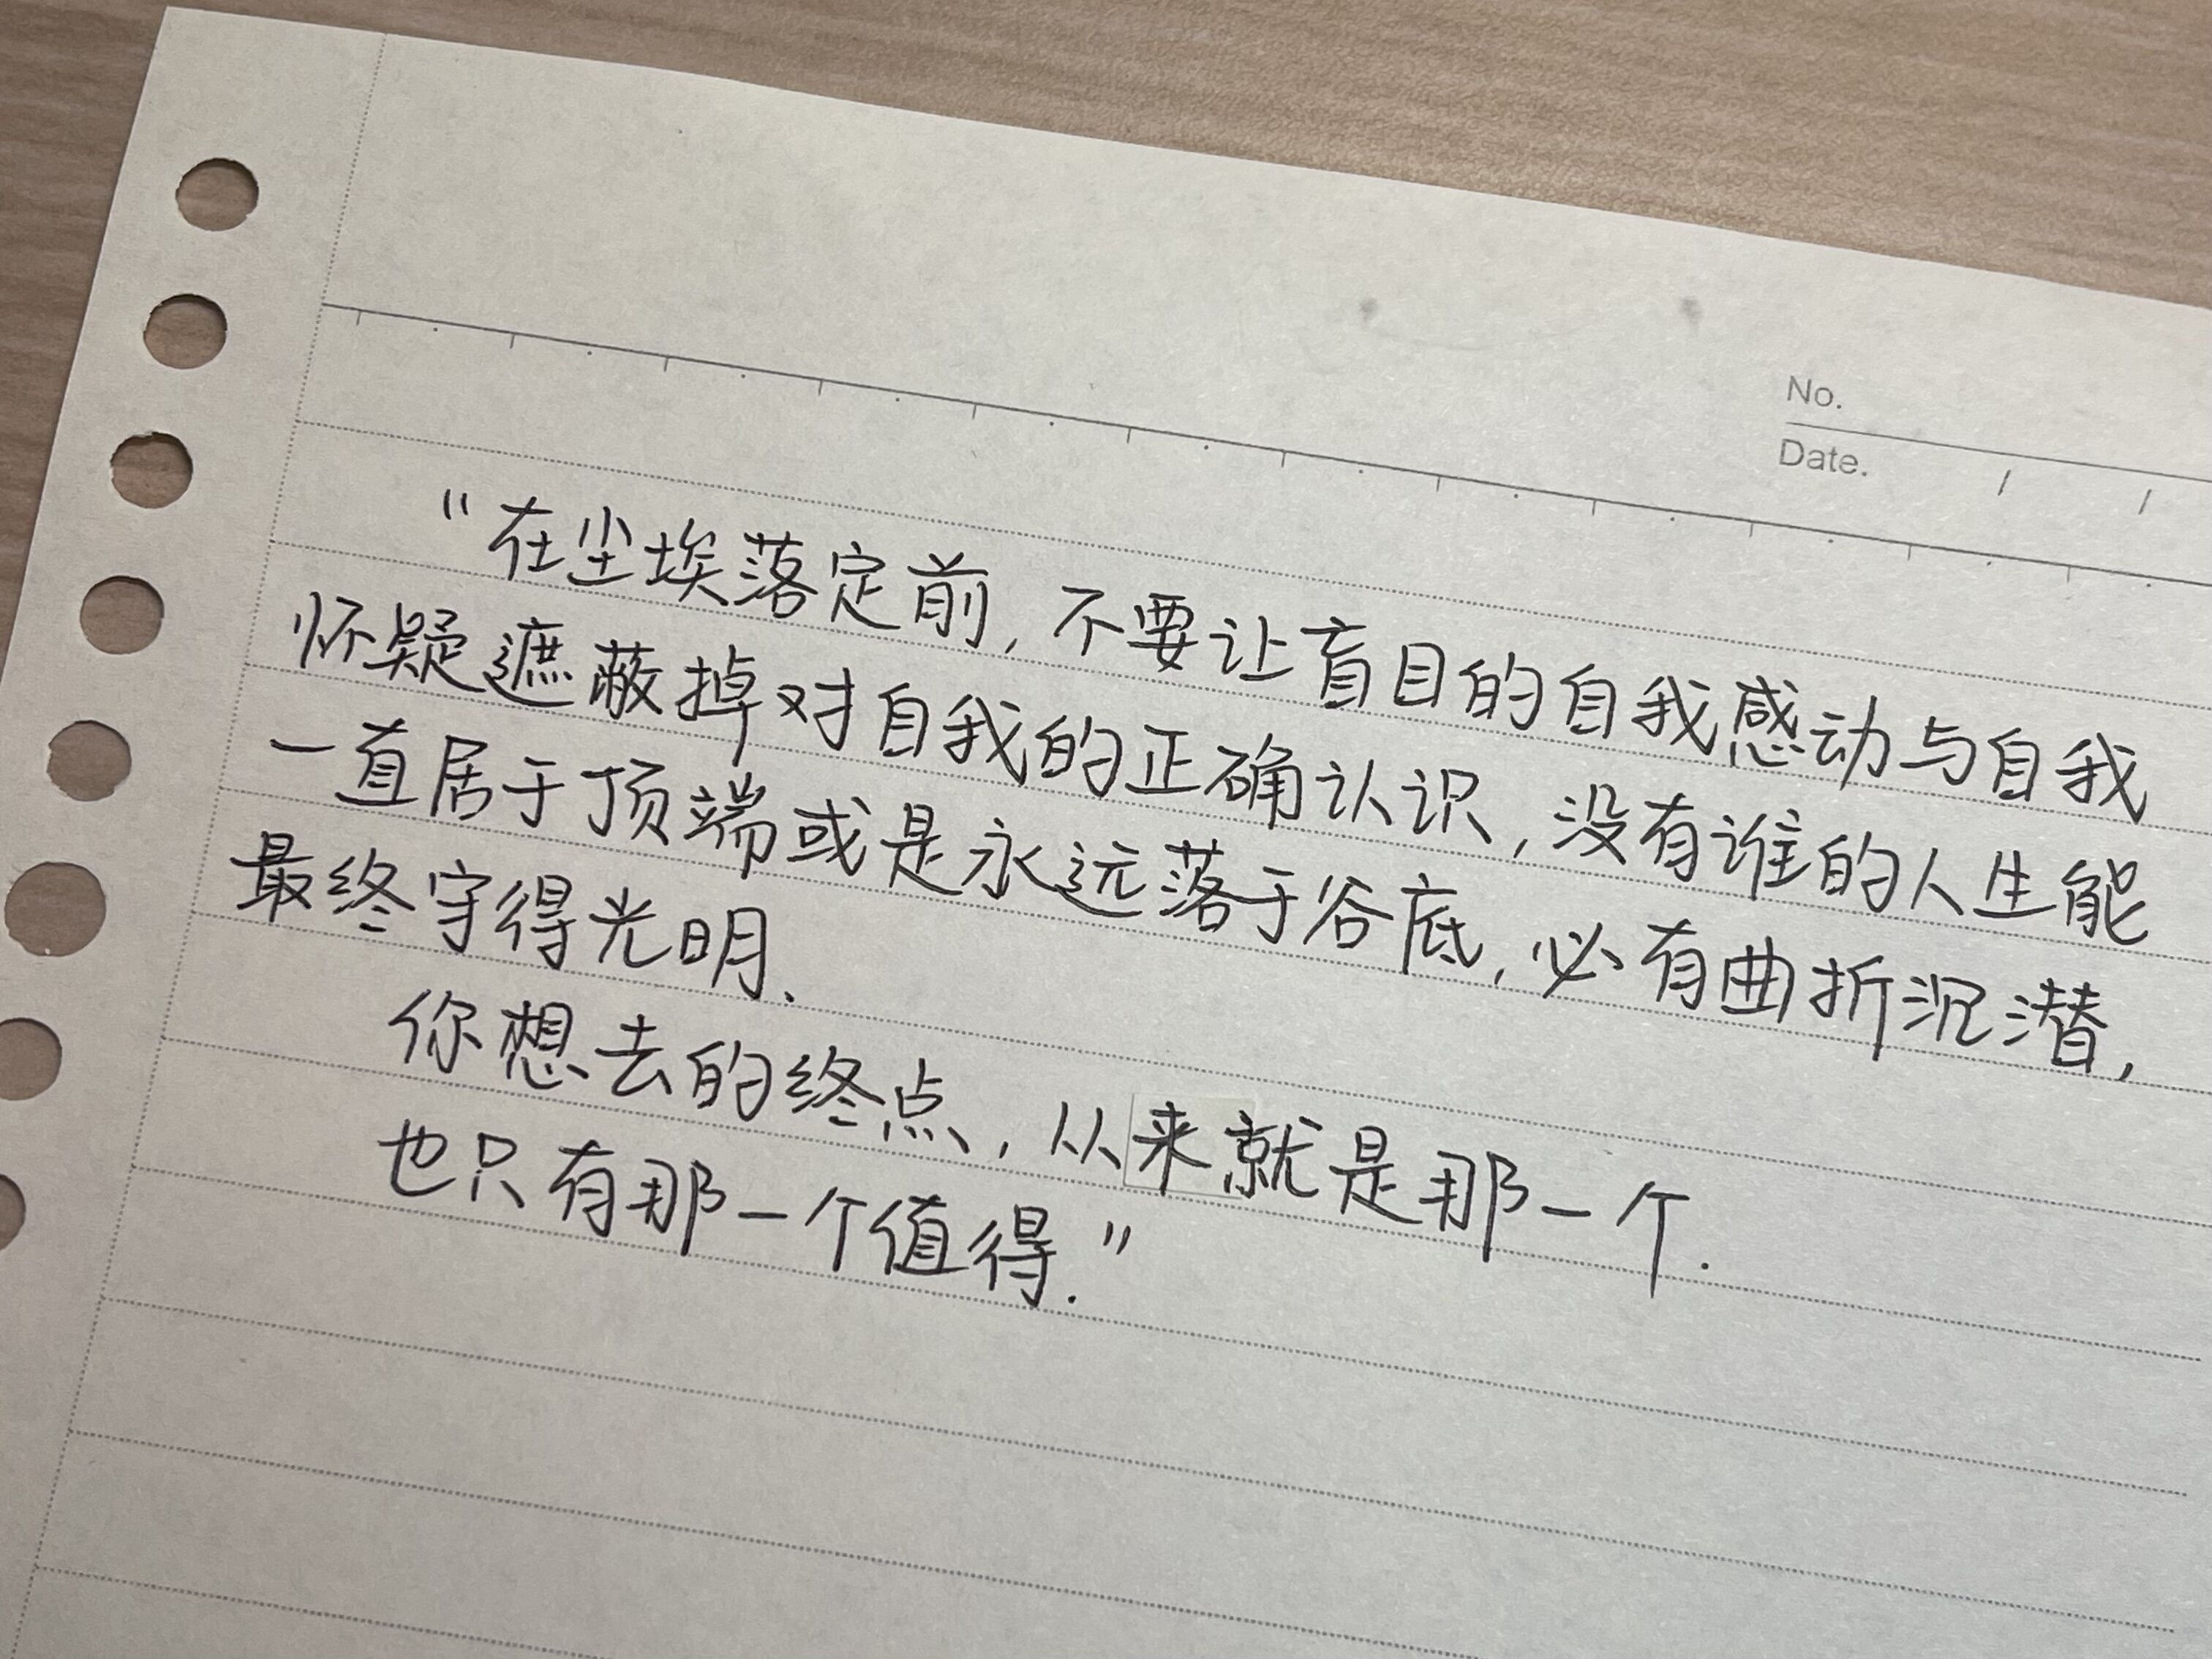 No.
Date. / /
"在尘埃落定前,不要让盲目的自我感动与自我
怀疑遮蔽掉对自我的正确认识,没有谁的人生能
一直居于顶端或是永远落于谷底,必有曲折沉潜,
最终守得光明.
你想去的终点,从来就是那一个.
也只有那一个值得."